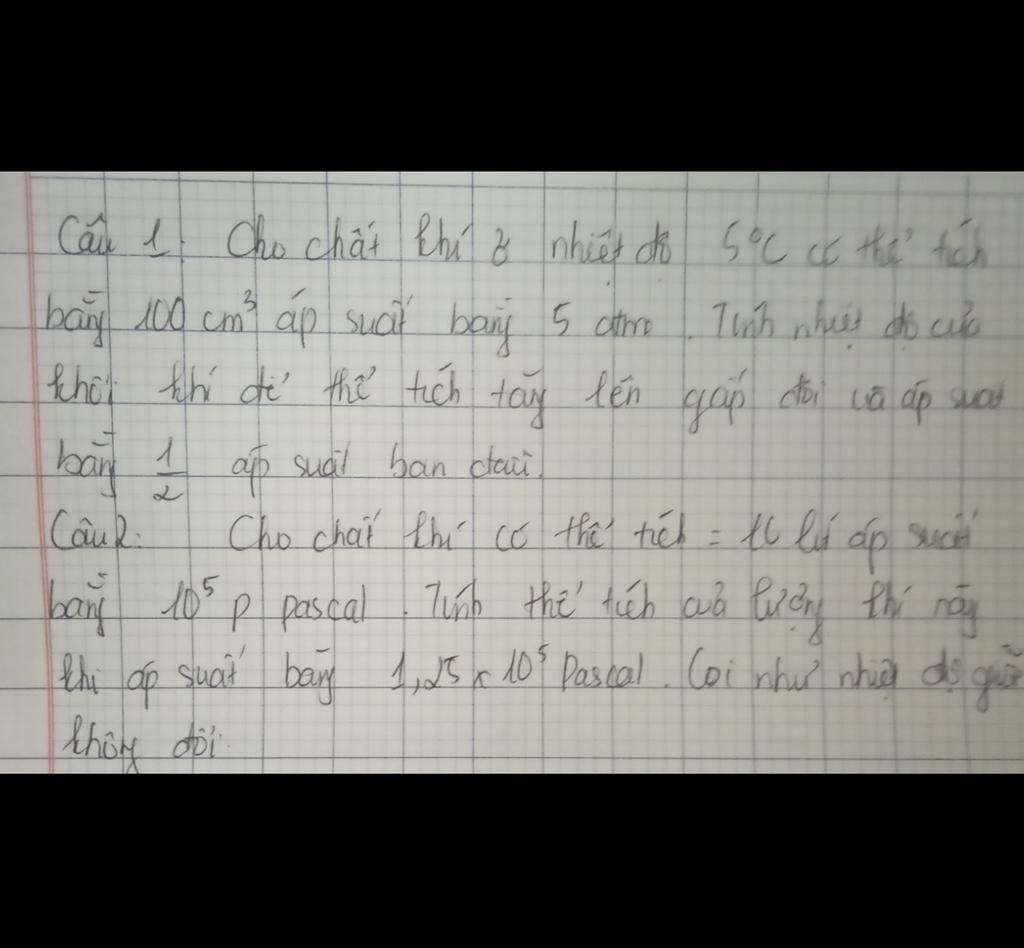 Câu 1. Cho chất khí ở nhiệt độ 5°C có thể tích
bằng 100 cm³ áp suất bằng 5 atm. Tính nhiệt độ của
khối khí để thể tích tăng lên gấp đôi và áp suất
bằng 1/2 áp suất ban đầu.
Câu 2: Cho chất khí có thể tích = áp suất
bằng 10⁵ p pascal. Tính thể tích của lượng khí này
khi áp suất bằng 1,25 x 10⁵ Pascal. Coi như nhiệt độ giữ
không đổi.